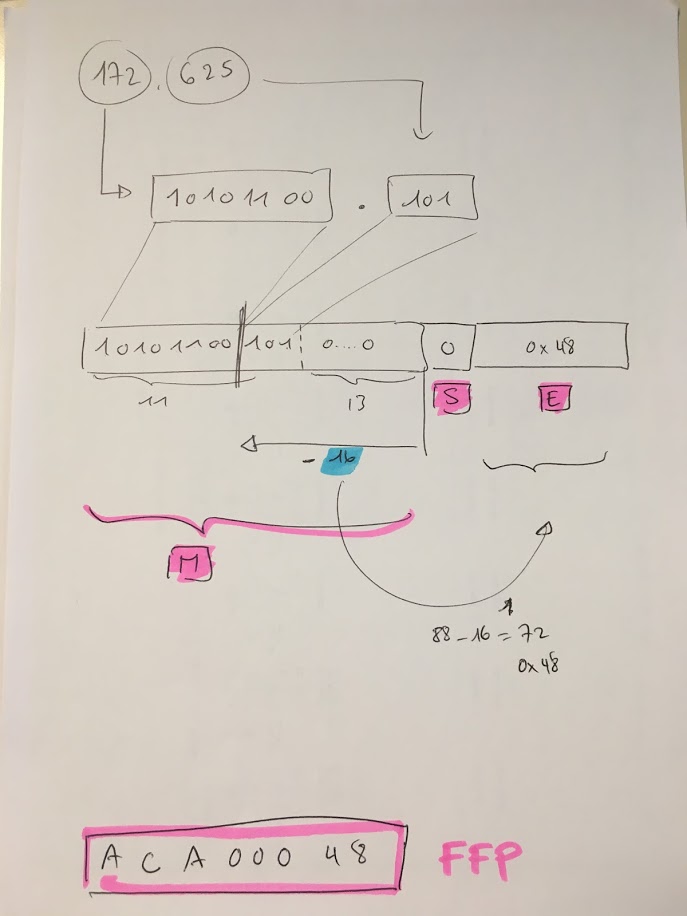 172 . 625
10101100 . 101
10101100 101 0....0 0 0x48
11 13 S E
- 16
M
88-16=72
0x48
ACA000 48 FFP